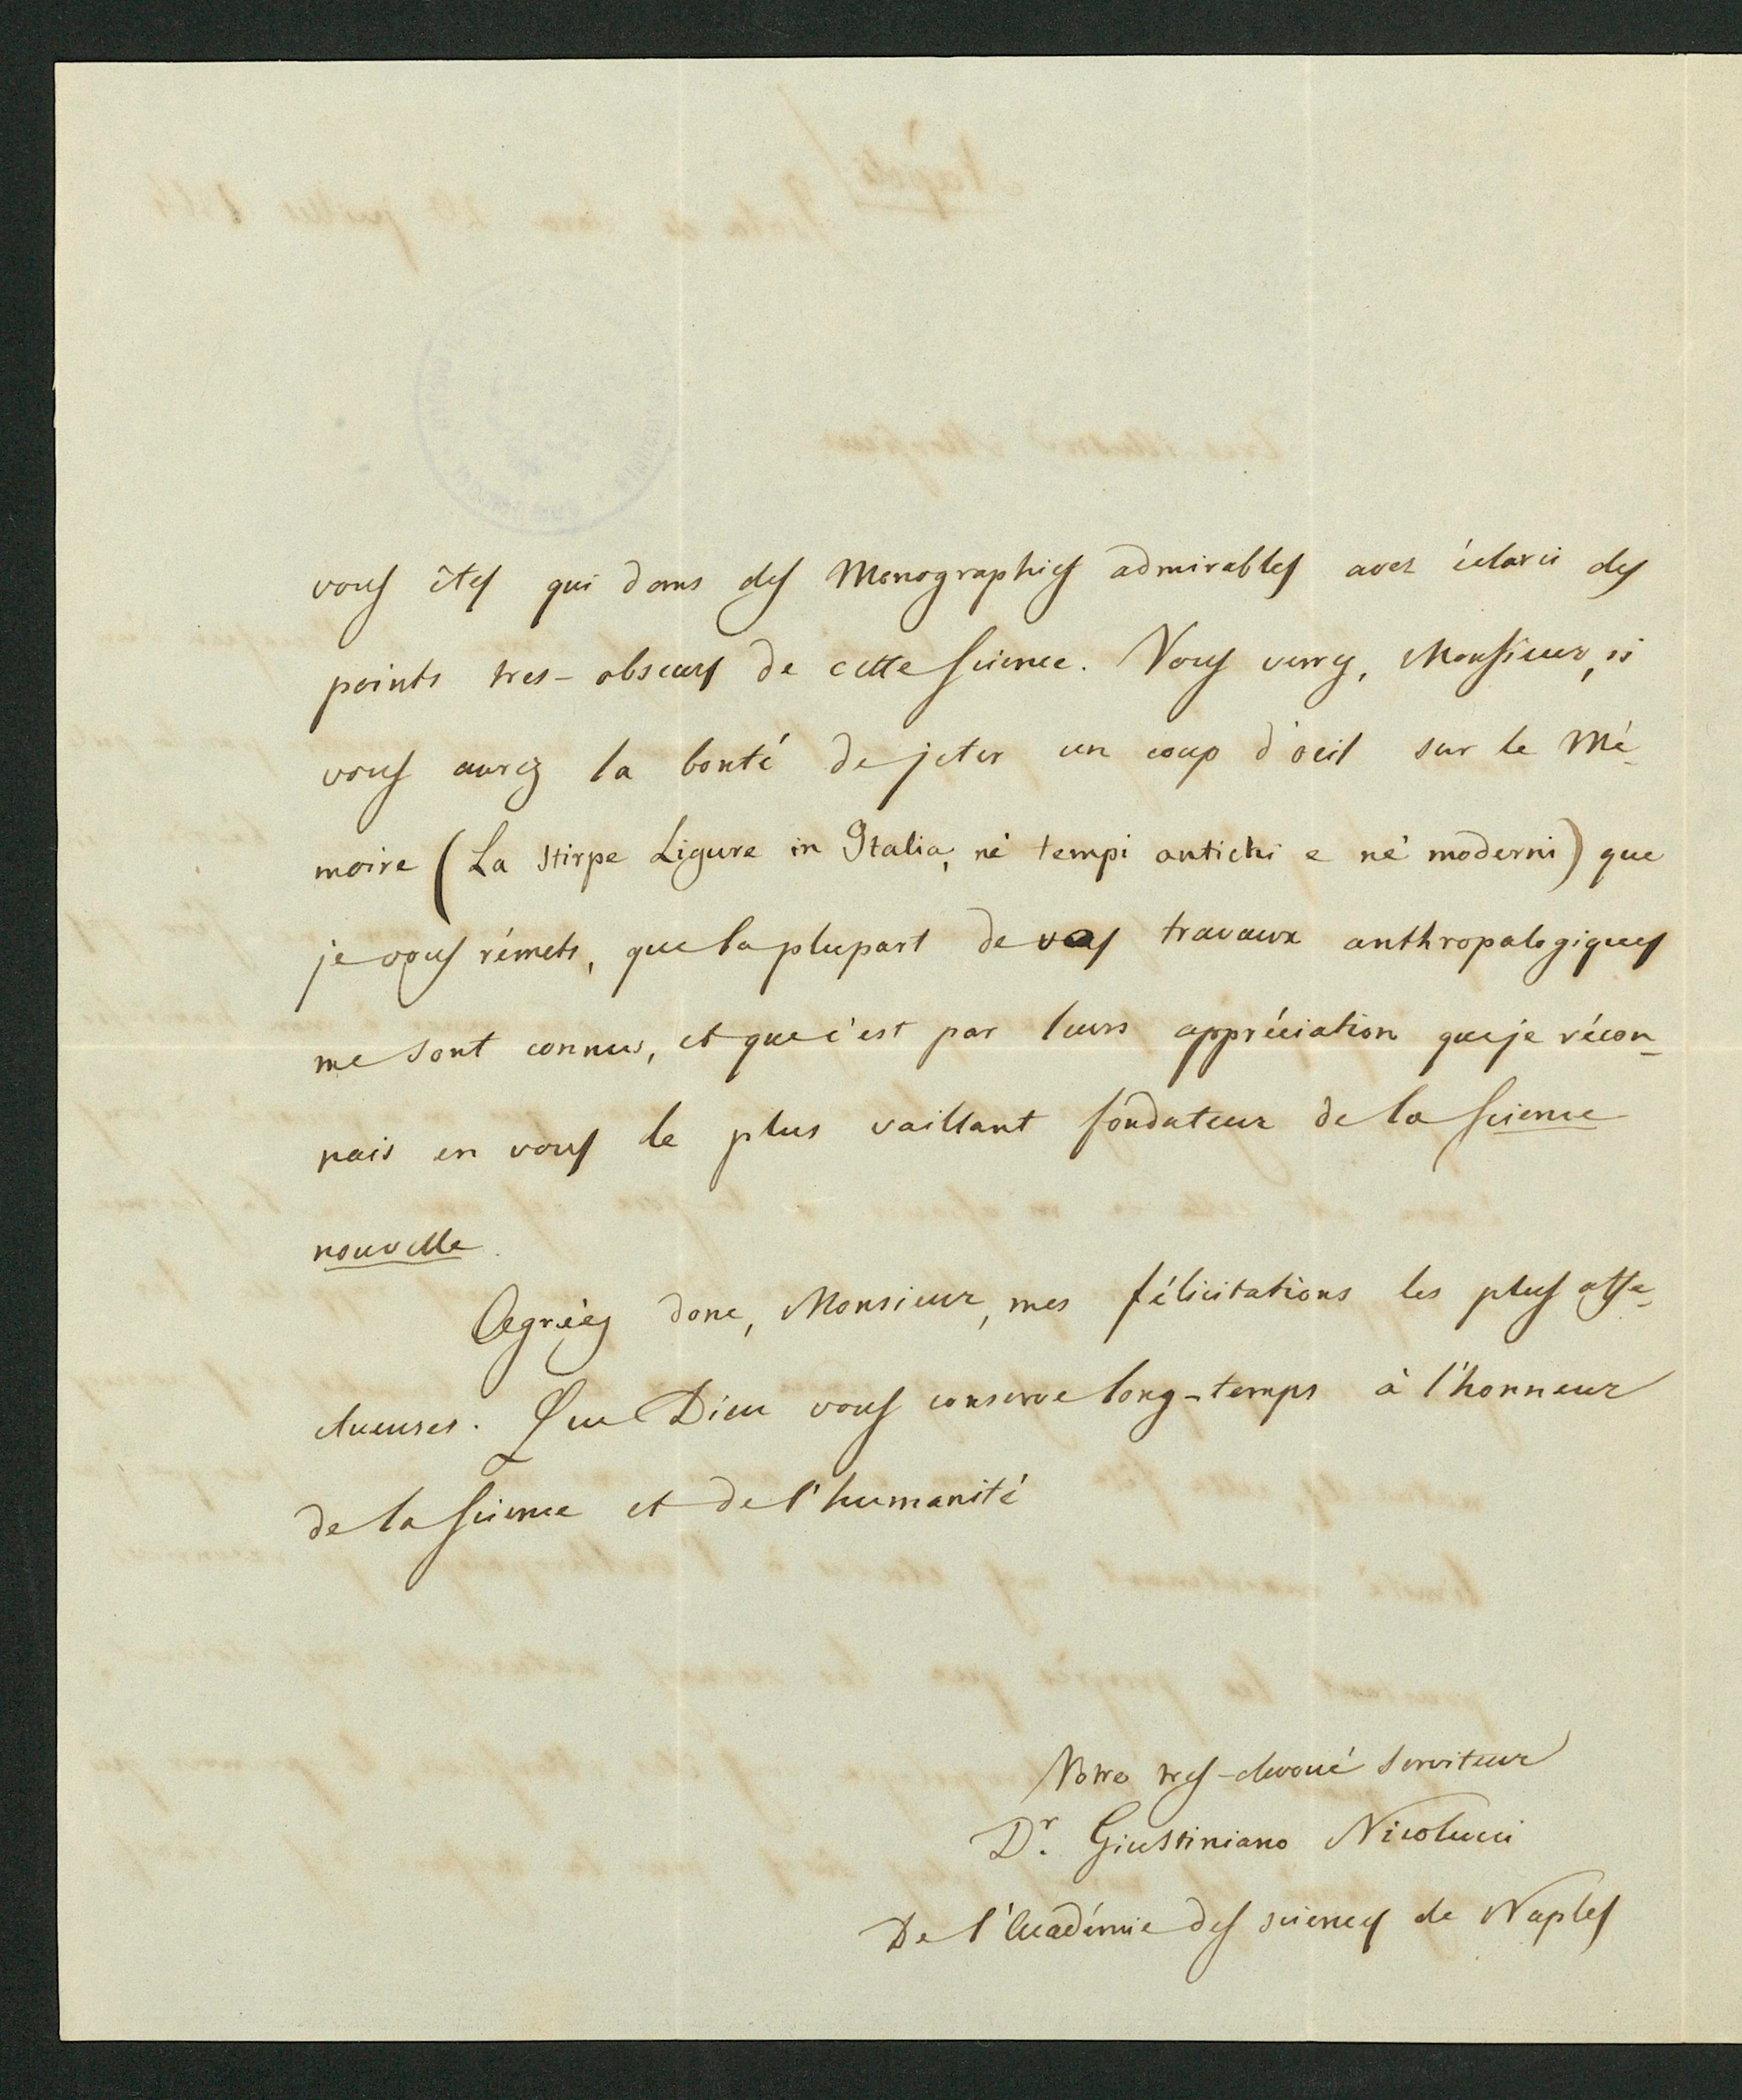 vous êtes qui dans des Monographies admirables avez éclarci des
points tres-obscurs de cette science. Vous verrez, Monsieur, si
vous aurez la bonté de jeter un coup d'oeil sur le Mé-
moire (La Stirpe Ligure in Italia, né tempi antichi e né moderni) que
je vous rémets, que la plupart de vos travaux anthropologiques
me sont connus, et que c'est par leurs appréciation que je récon-
nais en vous le plus vaillant fondateur de la science
nouvelle.
Agréez donc, Monsieur, mes félicitations les plus affe-
ctueuses. Que Dieu vous conserve long-temps à l'honneur
de la science et de l'humanité
Votre tres-devoué serviteur
Dr. Giustiniano Nicolucci
De l'Académie des sciences de Naples